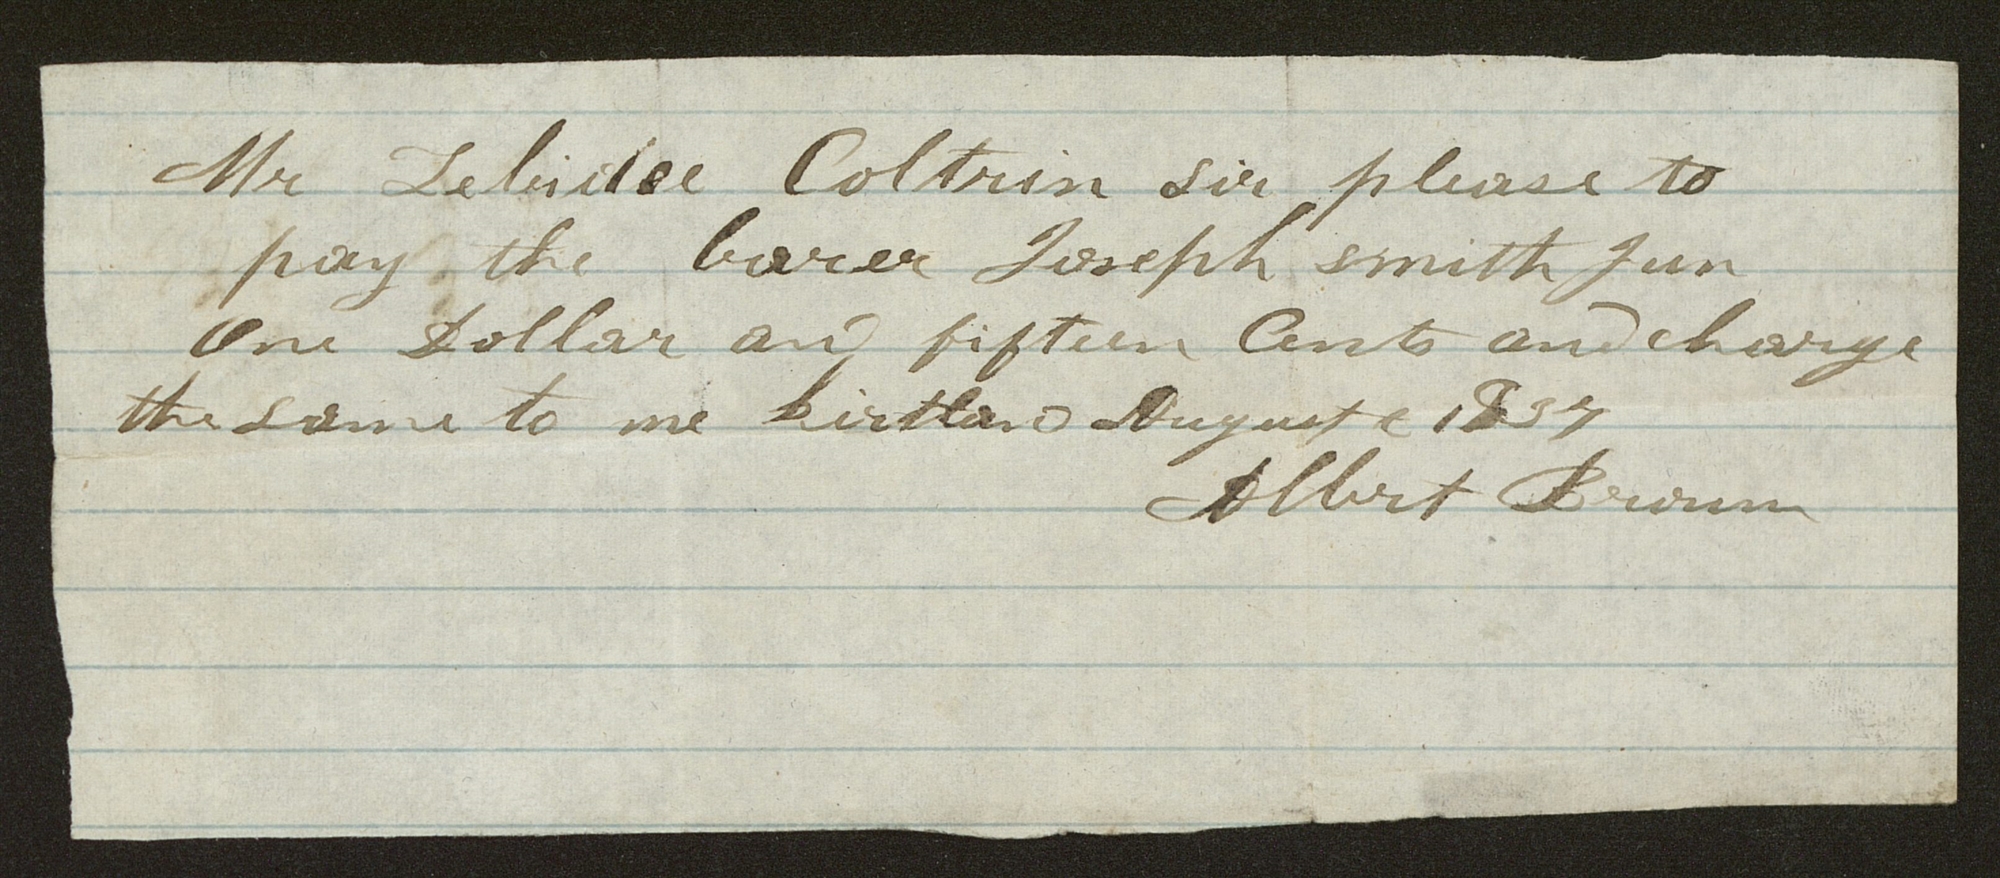 Mr Zebidee Coltrin sir please to
pay the barer Joseph smith Jun
One Dollar and fifteen Cents and charge
the same to me kirtland August 1837
Albert Brown